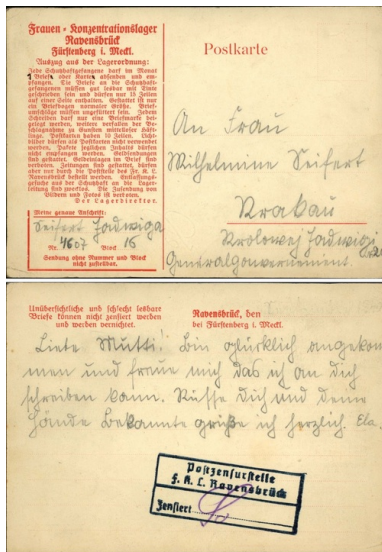 Frauen-Konzentrationslager
Ravensbrück
Fürstenberg i. Meckl.
Auszug aus der Lagerordnung:
Jede Schutzhaftgefangene darf im Monat
1 Brief oder Karte absenden und em-
pfangen. Die Briefe an die Schutzhaft-
gefangenen müssen gut lesbar mit Tinte
geschrieben sein und dürfen nur 15 Zeilen
auf einer Seite enthalten. Gestattet ist nur
ein Briefbogen normaler Größe. Brief-
umschläge müssen ungefüttert sein. Jedem
Schreiben darf nur eine Briefmarke bei-
gelegt werden, weitere verfallen der Be-
schlagnahme zu Gunsten mittelloser Häft-
linge. Postkarten haben 10 Zeilen. Licht-
bilder dürfen als Postkarten nicht verwendet
werden. Pakete jeglichen Inhalts dürfen
nicht empfangen werden. Geldsendungen
sind gestattet. Geldbeträge im Brief sind
verboten. Zeitungen sind gestattet, dürfen
aber nur durch die Poststelle des Fr. K. L.
Ravensbrück bestellt werden. Entlassungs-
gesuche aus der Schutzhaft an die Lager-
leitung sind zwecklos. Die Zusendung von
Bildern und Fotos ist verboten.
Der Lagerdirektor.
Meine genaue Anschrift:
Seifert Jadwiga
Nr. 4607 Block 16
Sendung ohne Nummer und Block
nicht zustellbar.
Postkarte
An Frau
Wilhelmine Seifert
Krakau
Krolowej Jadwigi
Generalgouvernement.
Unübersichtliche und schlecht lesbare
Briefe können nicht zensiert werden
und werden vernichtet.
Ravensbrück, den
bei Fürstenberg i. Meckl.
Liebe Mutti! Bin glücklich angekom
men und freue mich das ich an dich
schreiben kann. Küsse Dich und deine
Hände Bekannte grüße ich herzlich. Ela.
Postzensurstelle
F. K. L. Ravensbrück
Zensiert